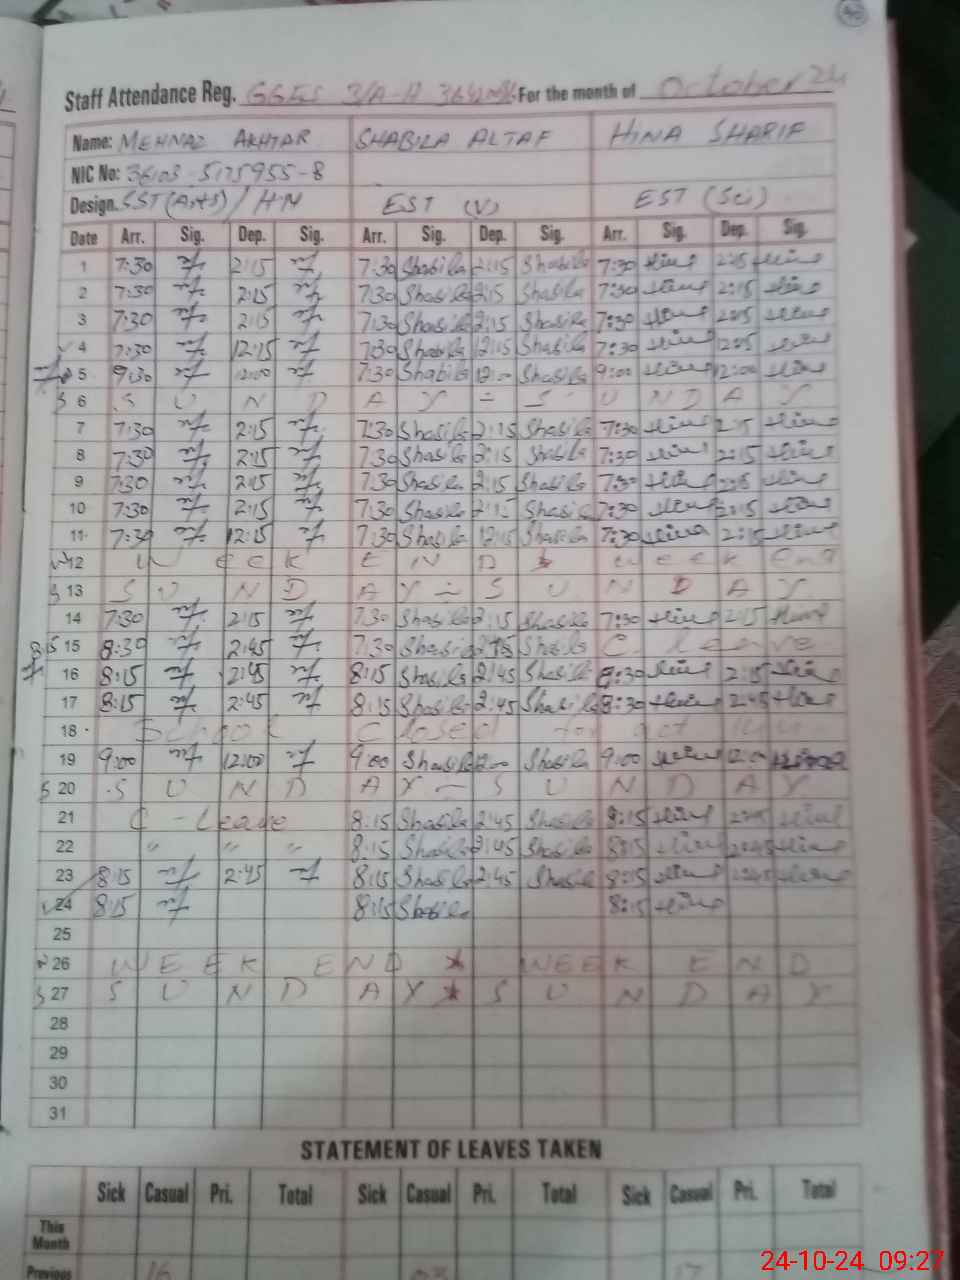 Staff Attendance Reg. GGES 3/A-H For the month of October 24
Name: MEHNAZ AKHTAR SHABILA ALTAF HINA SHARIF
NIC No: 36103-5175955-8
Design. SST (Arts) / HM EST (V) EST (Sci)
Date Arr. Sig. Dep. Sig. Arr. Sig. Dep. Sig. Arr. Sig. Dep. Sig.
1 7:30 2:15 7:30 Shabila 2:15 Shabila 7:30 Hina 2:15 Hina
2 7:30 2:15 7:30 Shabila 2:15 Shabila 7:30 Hina 2:15 Hina
3 7:30 2:15 7:30 Shabila 2:15 Shabila 7:30 Hina 2:15 Hina
4 7:30 12:15 7:30 Shabila 12:15 Shabila 7:30 Hina 12:15 Hina
5 9:30 12:00 7:30 Shabila 12:00 Shabila 9:00 Hina 12:00 Hina
S 6 S U N D A Y = S U N D A Y
7 7:30 2:15 7:30 Shabila 2:15 Shabila 7:30 Hina 2:15 Hina
8 7:30 2:15 7:30 Shabila 2:15 Shabila 7:30 Hina 2:15 Hina
9 7:30 2:15 7:30 Shabila 2:15 Shabila 7:30 Hina 2:15 Hina
10 7:30 2:15 7:30 Shabila 2:15 Shabila 7:30 Hina 2:15 Hina
11 7:30 12:15 7:30 Shabila 12:15 Shabila 7:30 Hina 2:15 Hina
12 W E E K E N D * W E E K E n d
S 13 S U N D A Y = S U N D A Y
14 7:30 2:15 7:30 Shabila 2:15 Shabila 7:30 Hina 2:15 Hina
15 8:30 2:45 7:30 Shabila 2:45 Shabila C. leave
16 8:15 2:45 8:15 Shabila 2:45 Shabila 8:30 Hina 2:15 Hina
17 8:15 2:45 8:15 Shabila 2:45 Shabila 8:30 Hina 2:45 Hina
18 School Closed
19 9:00 12:00 9:00 Shabila 12:00 Shabila 9:00 Hina 12:00 Hina
S 20 S U N D A Y - S U N D A Y
21 C - Leave 8:15 Shabila 2:45 Shabila 8:15 Hina 2:45 Hina
22 " " " 8:15 Shabila 2:45 Shabila 8:15 Hina 2:45 Hina
23 8:15 2:45 8:15 Shabila 2:45 Shabila 8:15 Hina 2:45 Hina
24 8:15 8:15 Shabila 8:15 Hina
25
26 W E E K E N D * W E E K E N D
S 27 S U N D A Y * S U N D A Y
28
29
30
31
STATEMENT OF LEAVES TAKEN
Sick Casual Pri. Total Sick Casual Pri. Total Sick Casual Pri. Total
This Month
Previous 16 17
24-10-24 09:27